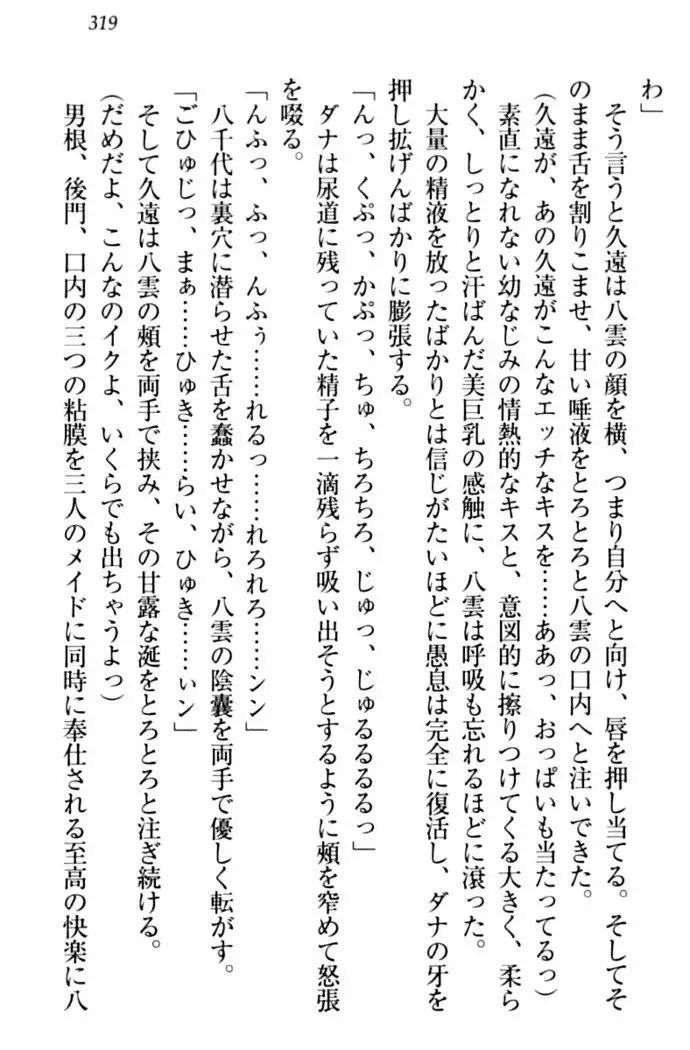 319
わ」
　そう言うと久遠は八雲の顔を横、つまり自分へと向け、唇を押し当てる。そしてそ
のまま舌を割りこませ、甘い唾液をとろとろと八雲の口内へと注いできた。
（久遠が、あの久遠がこんなエッチなキスを……ああっ、おっぱいも当たってるっ）
　素直になれない幼なじみの情熱的なキスと、意図的に擦りつけてくる大きく、柔ら
かく、しっとりと汗ばんだ美巨乳の感触に、八雲は呼吸も忘れるほどに滾った。
　大量の精液を放ったばかりとは信じがたいほどに愚息は完全に復活し、ダナの牙を
押し拡げんばかりに膨張する。
「んっ、くぷっ、かぷっ、ちゅ、ちろちろ、じゅっ、じゅるるるるっ」
　ダナは尿道に残っていた精子を一滴残らず吸い出そうとするように頬を窄めて怒張
を啜る。
「んふっ、ふっ、んふぅ……れるっ……れろれろ……ンン」
　八千代は裏穴に潜らせた舌を蠢かせながら、八雲の陰嚢を両手で優しく転がす。
「ごひゅじっ、まぁ……ひゅき……らい、ひゅき……ぃン」
　そして久遠は八雲の頬を両手で挟み、その甘露な涎をとろとろと注ぎ続ける。
（だめだよ、こんなのイクよ、いくらでも出ちゃうよっ）
　男根、後門、口内の三つの粘膜を三人のメイドに同時に奉仕される至高の快楽に八